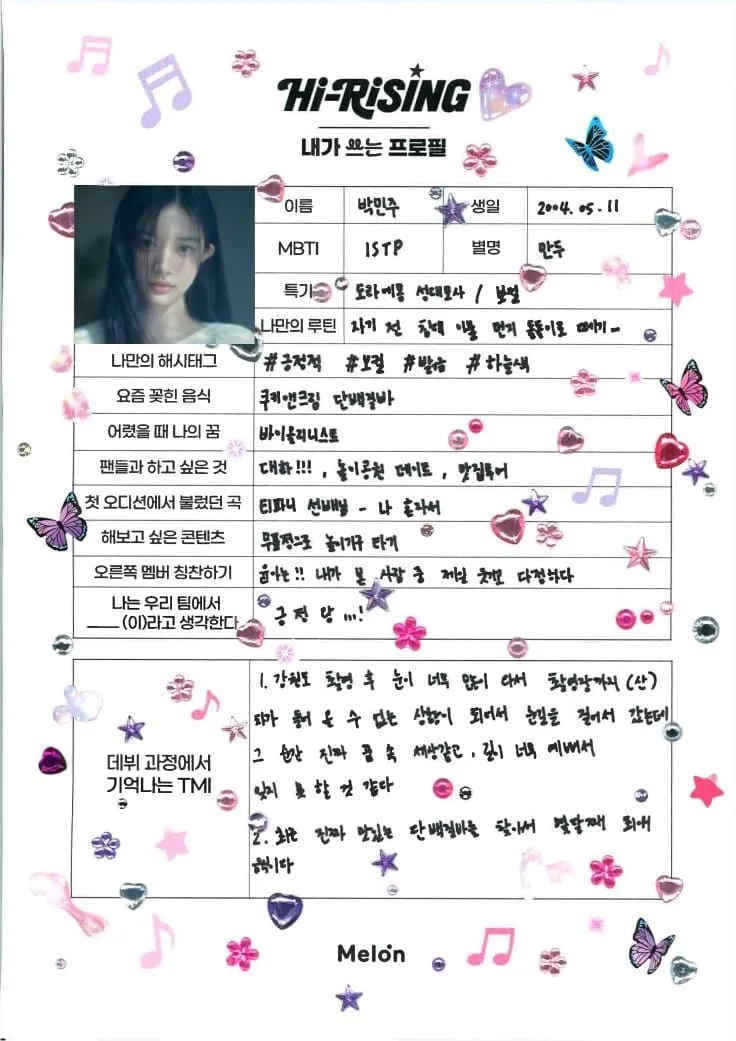 Hi-RiSiNG
내가 쓰는 프로필
이름 박민주 생일 2004. 05. 11
MBTI ISTP 별명 만두
특기 도라에몽 성대모사 / 보컬
나만의 루틴 자기 전 침대 이불 먼지 돌돌이로 떼기 ~
나만의 해시태그 #긍정적 #보컬 #발랄 #하늘색
요즘 꽂힌 음식 쿠키앤크림 단백질바
어렸을 때 나의 꿈 바이올리니스트
팬들과 하고 싶은 것 대화!!!, 놀이공원 데이트, 맛집투어
첫 오디션에서 불렀던 곡 티파니 선배님 - 나 혼자서
해보고 싶은 콘텐츠 무표정으로 놀이기구 타기
오른쪽 멤버 칭찬하기 윤아는!! 내가 본 사람 중 제일 웃기고 다정하다
나는 우리 팀에서
____ (이)라고 생각한다 긍정 왕 ...!
데뷔 과정에서
기억나는 TMI
1. 강원도 촬영 후 눈이 너무 많이 와서 촬영장까지 (산)
차가 들어 올 수 없는 상황이 되어서 눈길을 걸어서 갔는데
그 순간 진짜 꿈 속 세상같고, 길이 너무 예뻐서
잊지 못 할 것 같다
2. 최근 진짜 맛있는 단백질바를 찾아서 몇달째 최애
간식이다
Melon